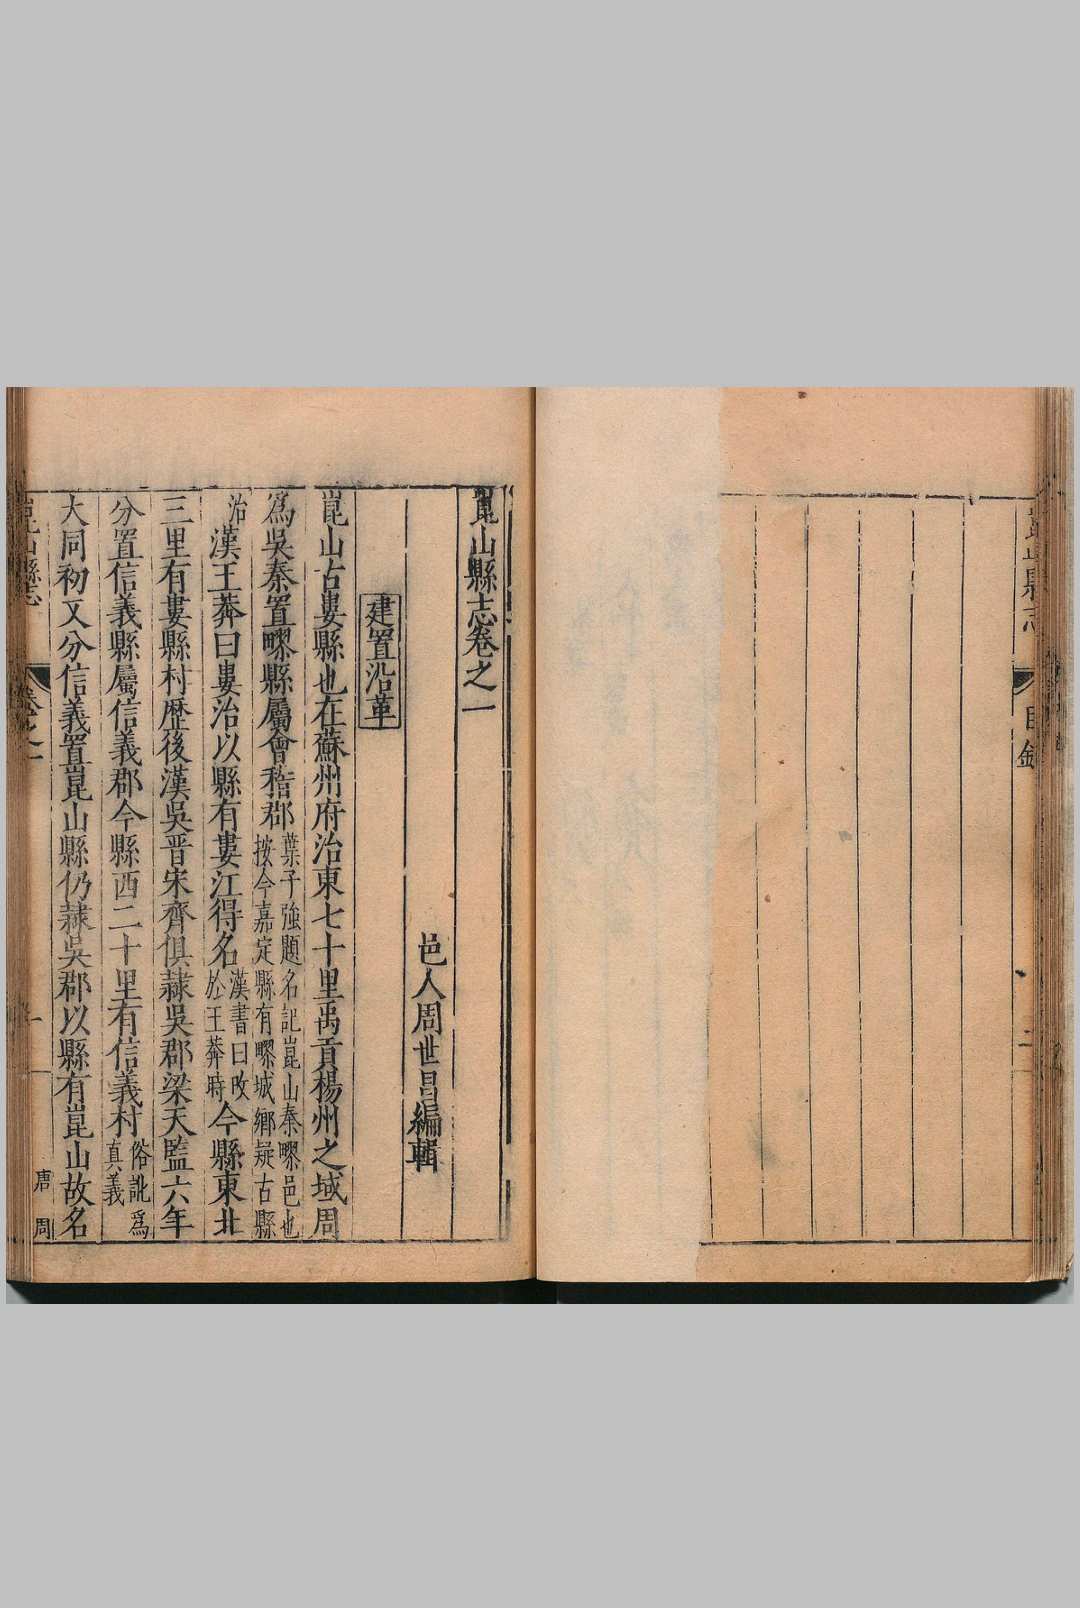 崑山縣志
目錄
二
崑山縣志卷之一
邑人周世昌編輯
建置沿革
崑山古婁縣也在蘇州府治東七十里禹貢楊州之域周
爲吳秦置疁縣屬會稽郡葉子強題名記崑山秦疁邑也按今嘉定縣有疁城鄉疑古縣
治漢王莽曰婁治以縣有婁江得名漢書曰攺於王莽時今縣東北
三里有婁縣村歷後漢吳晉宋齊俱隷吳郡梁天監六年
分置信義縣屬信義郡今縣西二十里有信義村俗訛爲真義
大同初又分信義置崑山縣仍隷吳郡以縣有崑山故名
崑山縣志
卷之一
一
唐周